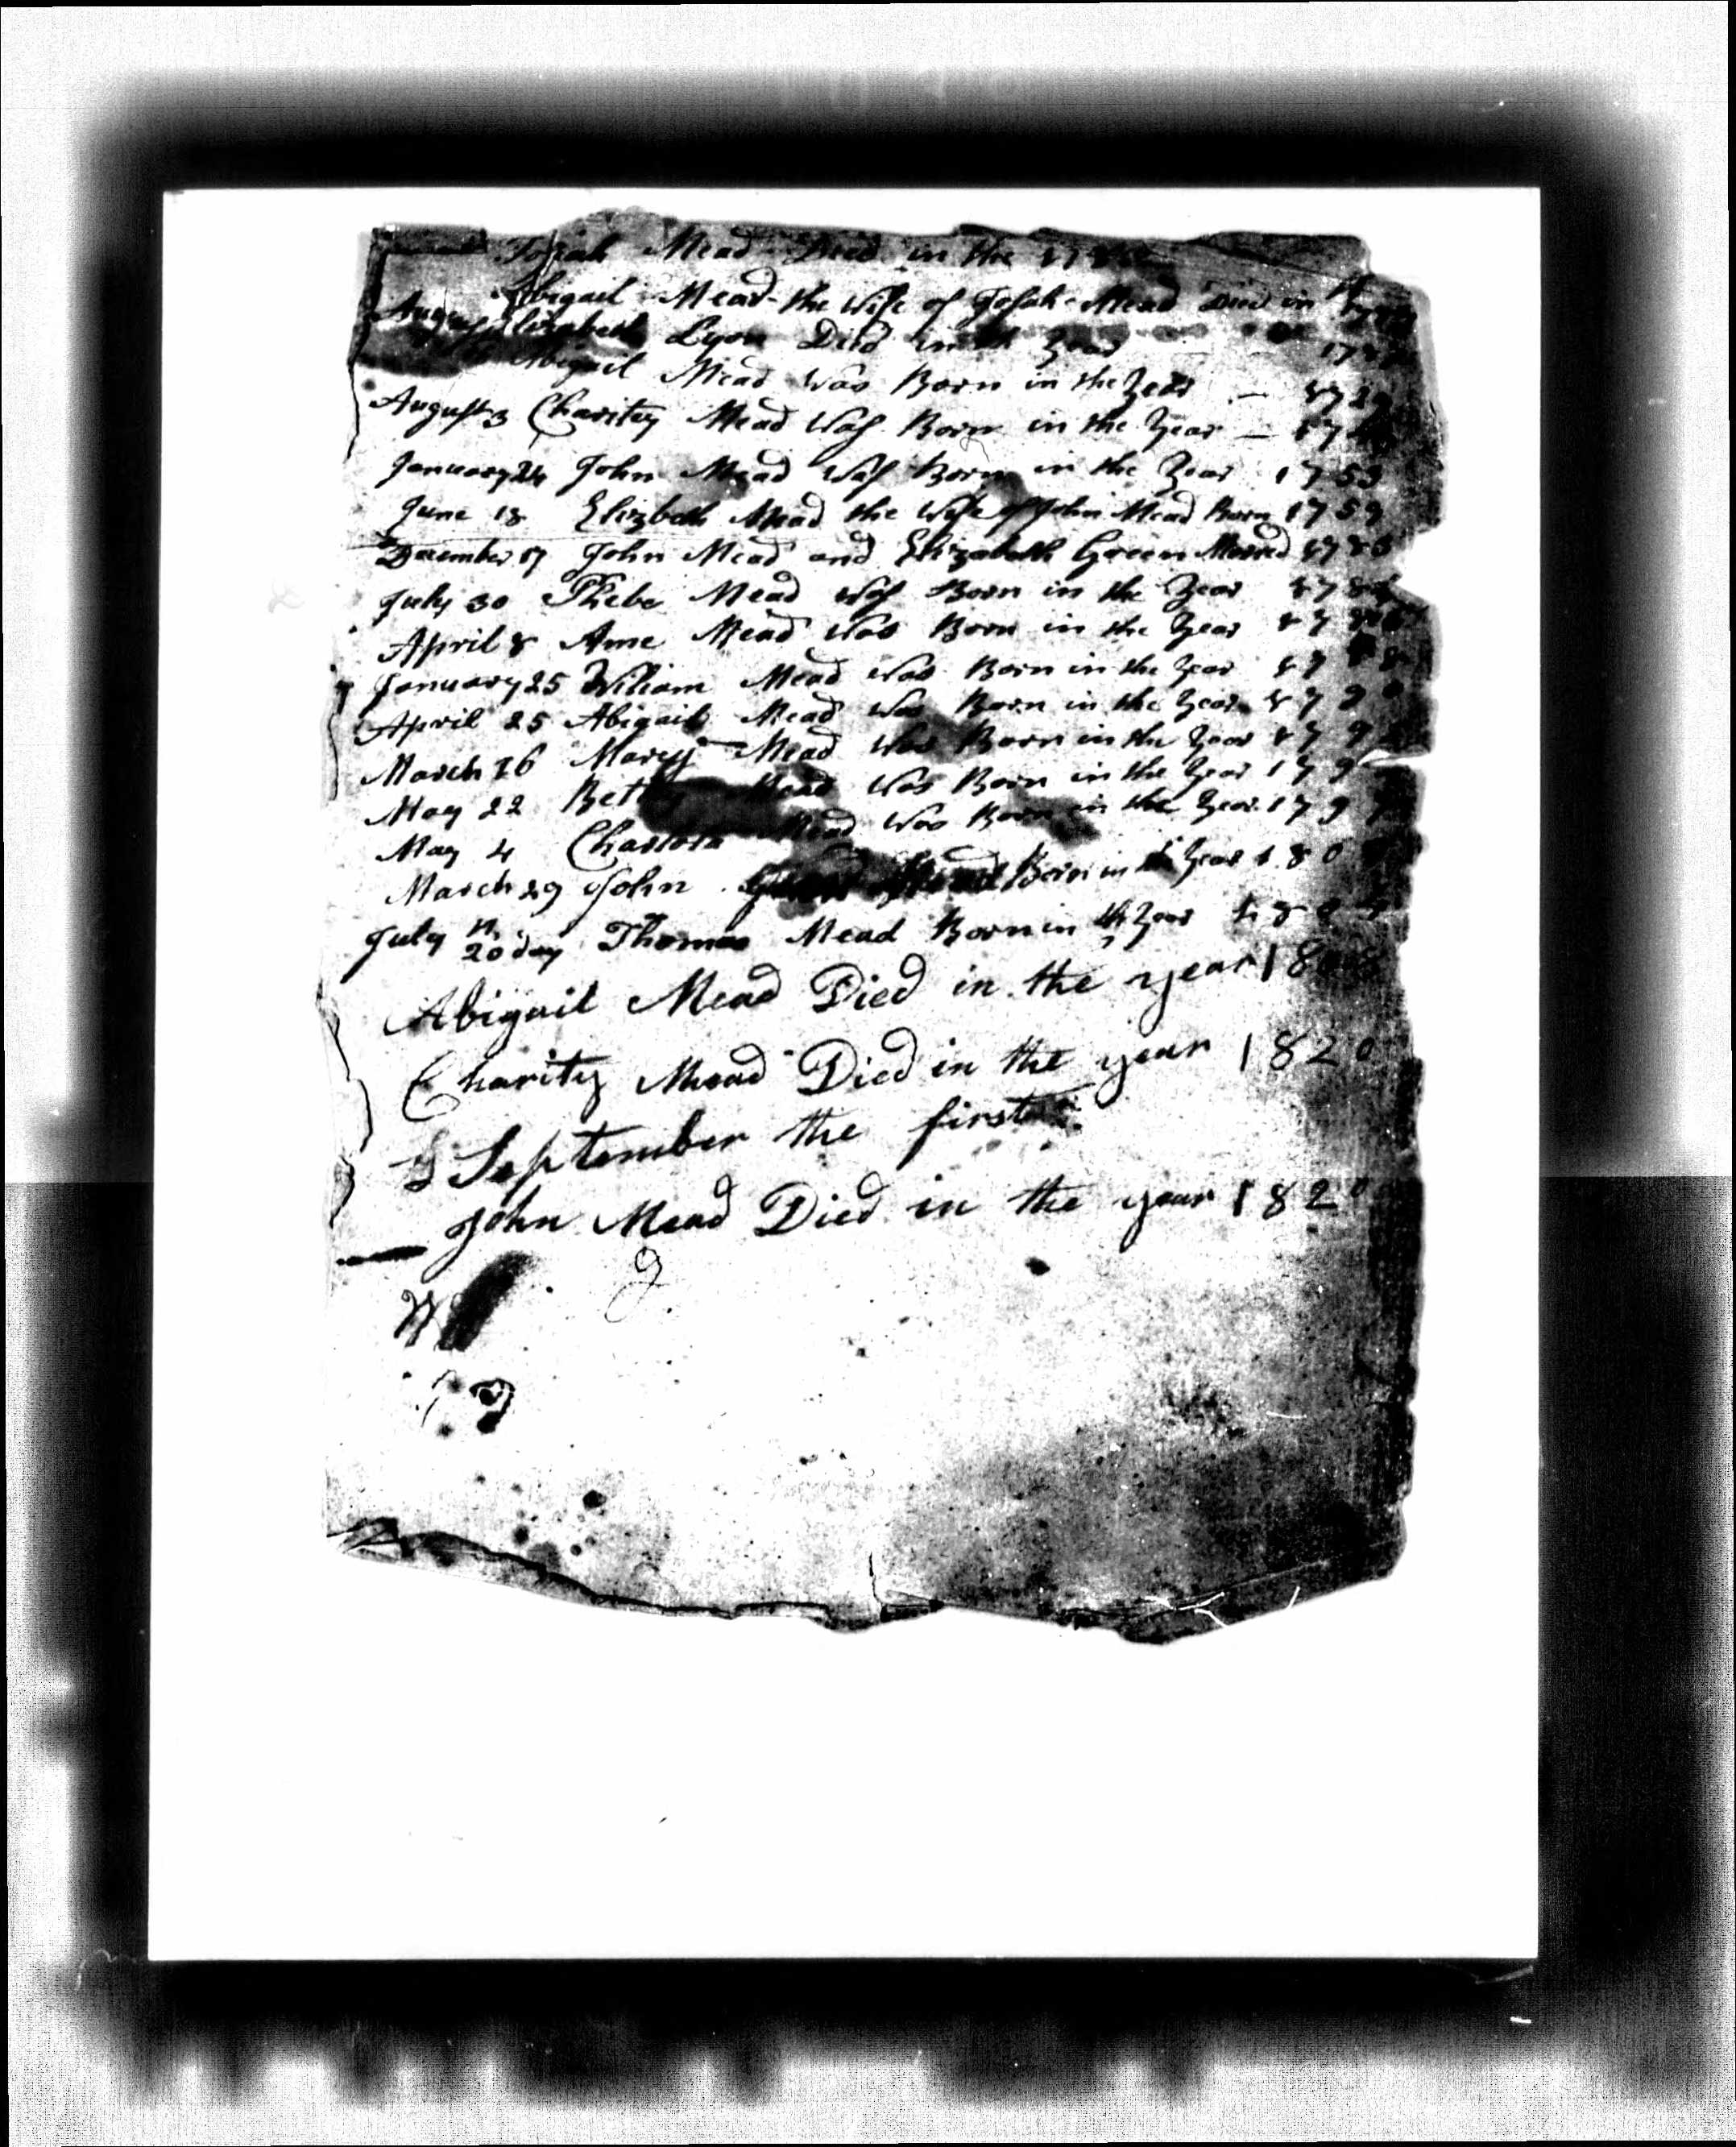 Josiah Mead Died in the 17
Abigail Mead the Wife of Josah Mead Died in
Elizabeth Lyon Died in the Year 17
Abigail Mead Was Born in the Year — 172
August 3 Charity Mead Was Born in the Year — 17
January 24 John Mead Was Born in the Year 1753
June 18 Elizbeth Mead the Wife of John Mead Born 1759
December 17 John Mead and Elizabeth Green Marred 178
July 30 Phebe Mead Was Born in the Year 178
April 8 Ame Mead Was Born in the Year 17
January 25 Wiliam Mead Was Born in the Year 17
April 25 Abigail Mead Was Born in the Year 179
March 16 Marcy Mead Was Born in the Year 179
May 22 Bet Mead Was Born in the Year 179
May 4 Charlota Mead Was Born in the Year 179
March 29 John Mead Born in the Year 180
July th 20 day Thomas Mead Born in th Year 180
Abigail Mead Died in the year 180
Charity Mead Died in the year 1820
September the first
John Mead Died in the year 1820